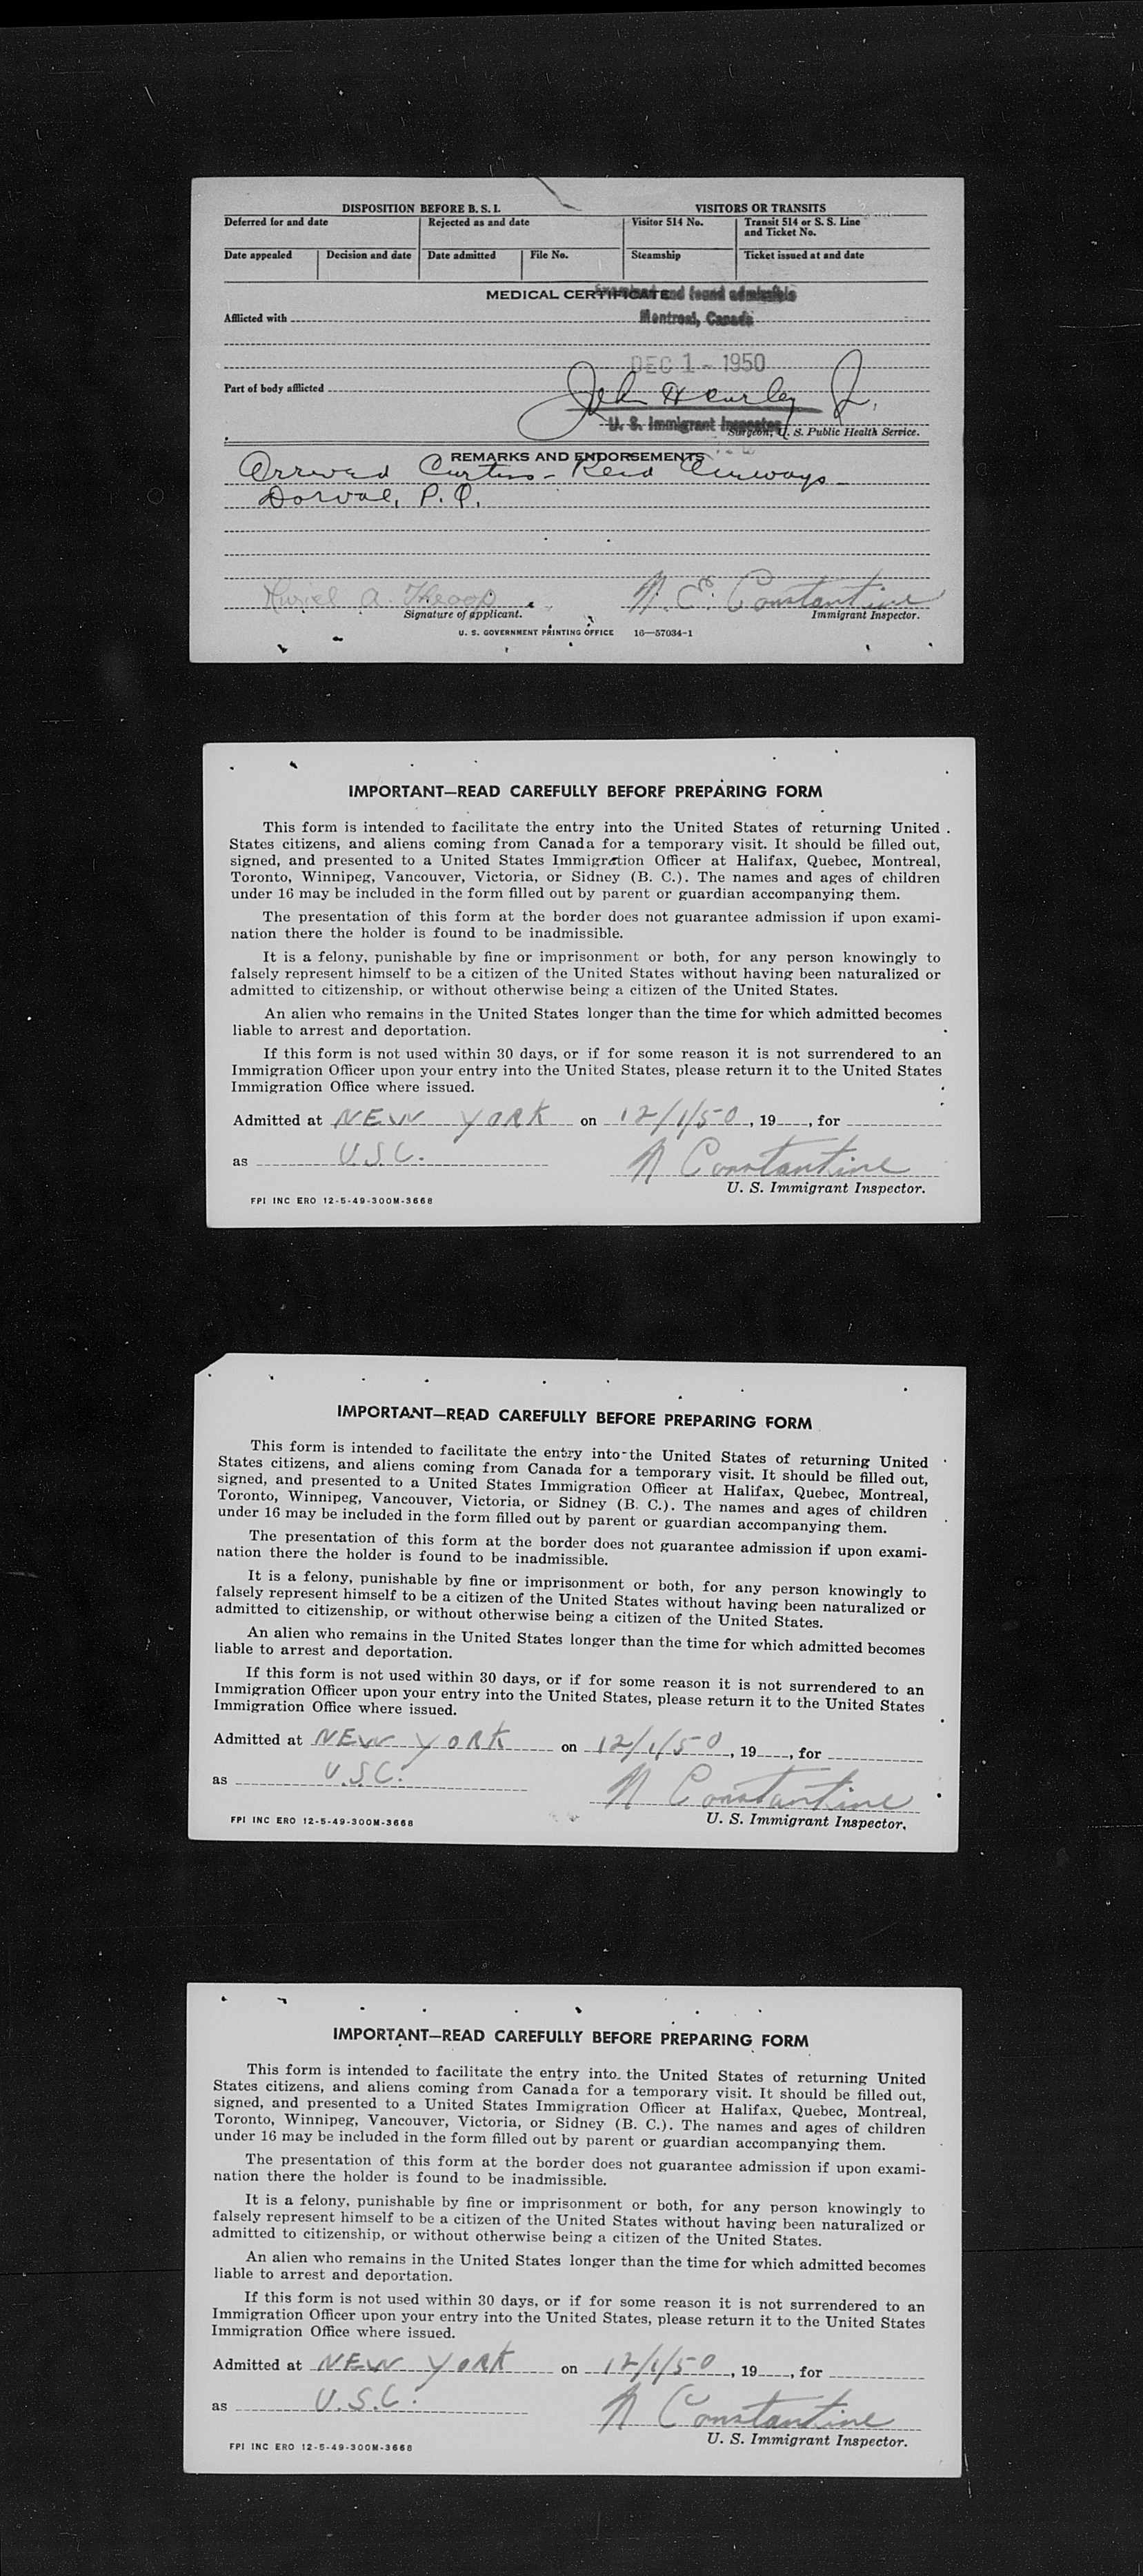 DISPOSITION BEFORE B. S. I.
VISITORS OR TRANSITS
Deferred for and date
Rejected as and date
Visitor 514 No.
Transit 514 or S. S. Line
and Ticket No.
Date appealed
Decision and date
Date admitted
File No.
Steamship
Ticket issued at and date
MEDICAL CERTIFICATE
Examined and found admissible
Afflicted with
Montreal, Canada
DEC 1 - 1950
Part of body afflicted
John H Jr.
U. S. Immigrant Inspector
Surgeon, U. S. Public Health Service.
REMARKS AND ENDORSEMENTS
Arrived Curtiss-Reid Airways
Dorval, P. Q.
Muriel A. Throop
N. E. Constantine
Signature of applicant.
Immigrant Inspector.
U. S. GOVERNMENT PRINTING OFFICE 16—57034-1
IMPORTANT—READ CAREFULLY BEFORE PREPARING FORM
This form is intended to facilitate the entry into the United States of returning United
States citizens, and aliens coming from Canada for a temporary visit. It should be filled out,
signed, and presented to a United States Immigration Officer at Halifax, Quebec, Montreal,
Toronto, Winnipeg, Vancouver, Victoria, or Sidney (B. C.). The names and ages of children
under 16 may be included in the form filled out by parent or guardian accompanying them.
The presentation of this form at the border does not guarantee admission if upon exami-
nation there the holder is found to be inadmissible.
It is a felony, punishable by fine or imprisonment or both, for any person knowingly to
falsely represent himself to be a citizen of the United States without having been naturalized or
admitted to citizenship, or without otherwise being a citizen of the United States.
An alien who remains in the United States longer than the time for which admitted becomes
liable to arrest and deportation.
If this form is not used within 30 days, or if for some reason it is not surrendered to an
Immigration Officer upon your entry into the United States, please return it to the United States
Immigration Office where issued.
Admitted at NEW YORK on 12/1/50, 19 , for
as U.S.C. N Constantine
U. S. Immigrant Inspector.
FPI INC ERO 12-5-49-300M-3668
IMPORTANT—READ CAREFULLY BEFORE PREPARING FORM
This form is intended to facilitate the entry into the United States of returning United
States citizens, and aliens coming from Canada for a temporary visit. It should be filled out,
signed, and presented to a United States Immigration Officer at Halifax, Quebec, Montreal,
Toronto, Winnipeg, Vancouver, Victoria, or Sidney (B. C.). The names and ages of children
under 16 may be included in the form filled out by parent or guardian accompanying them.
The presentation of this form at the border does not guarantee admission if upon exami-
nation there the holder is found to be inadmissible.
It is a felony, punishable by fine or imprisonment or both, for any person knowingly to
falsely represent himself to be a citizen of the United States without having been naturalized or
admitted to citizenship, or without otherwise being a citizen of the United States.
An alien who remains in the United States longer than the time for which admitted becomes
liable to arrest and deportation.
If this form is not used within 30 days, or if for some reason it is not surrendered to an
Immigration Officer upon your entry into the United States, please return it to the United States
Immigration Office where issued.
Admitted at NEW YORK on 12/1/50, 19 , for
as U.S.C. N Constantine
U. S. Immigrant Inspector.
FPI INC ERO 12-5-49-300M-3668
IMPORTANT—READ CAREFULLY BEFORE PREPARING FORM
This form is intended to facilitate the entry into the United States of returning United
States citizens, and aliens coming from Canada for a temporary visit. It should be filled out,
signed, and presented to a United States Immigration Officer at Halifax, Quebec, Montreal,
Toronto, Winnipeg, Vancouver, Victoria, or Sidney (B. C.). The names and ages of children
under 16 may be included in the form filled out by parent or guardian accompanying them.
The presentation of this form at the border does not guarantee admission if upon exami-
nation there the holder is found to be inadmissible.
It is a felony, punishable by fine or imprisonment or both, for any person knowingly to
falsely represent himself to be a citizen of the United States without having been naturalized or
admitted to citizenship, or without otherwise being a citizen of the United States.
An alien who remains in the United States longer than the time for which admitted becomes
liable to arrest and deportation.
If this form is not used within 30 days, or if for some reason it is not surrendered to an
Immigration Officer upon your entry into the United States, please return it to the United States
Immigration Office where issued.
Admitted at NEW YORK on 12/1/50, 19 , for
as U.S.C. N Constantine
U. S. Immigrant Inspector.
FPI INC ERO 12-5-49-300M-3668